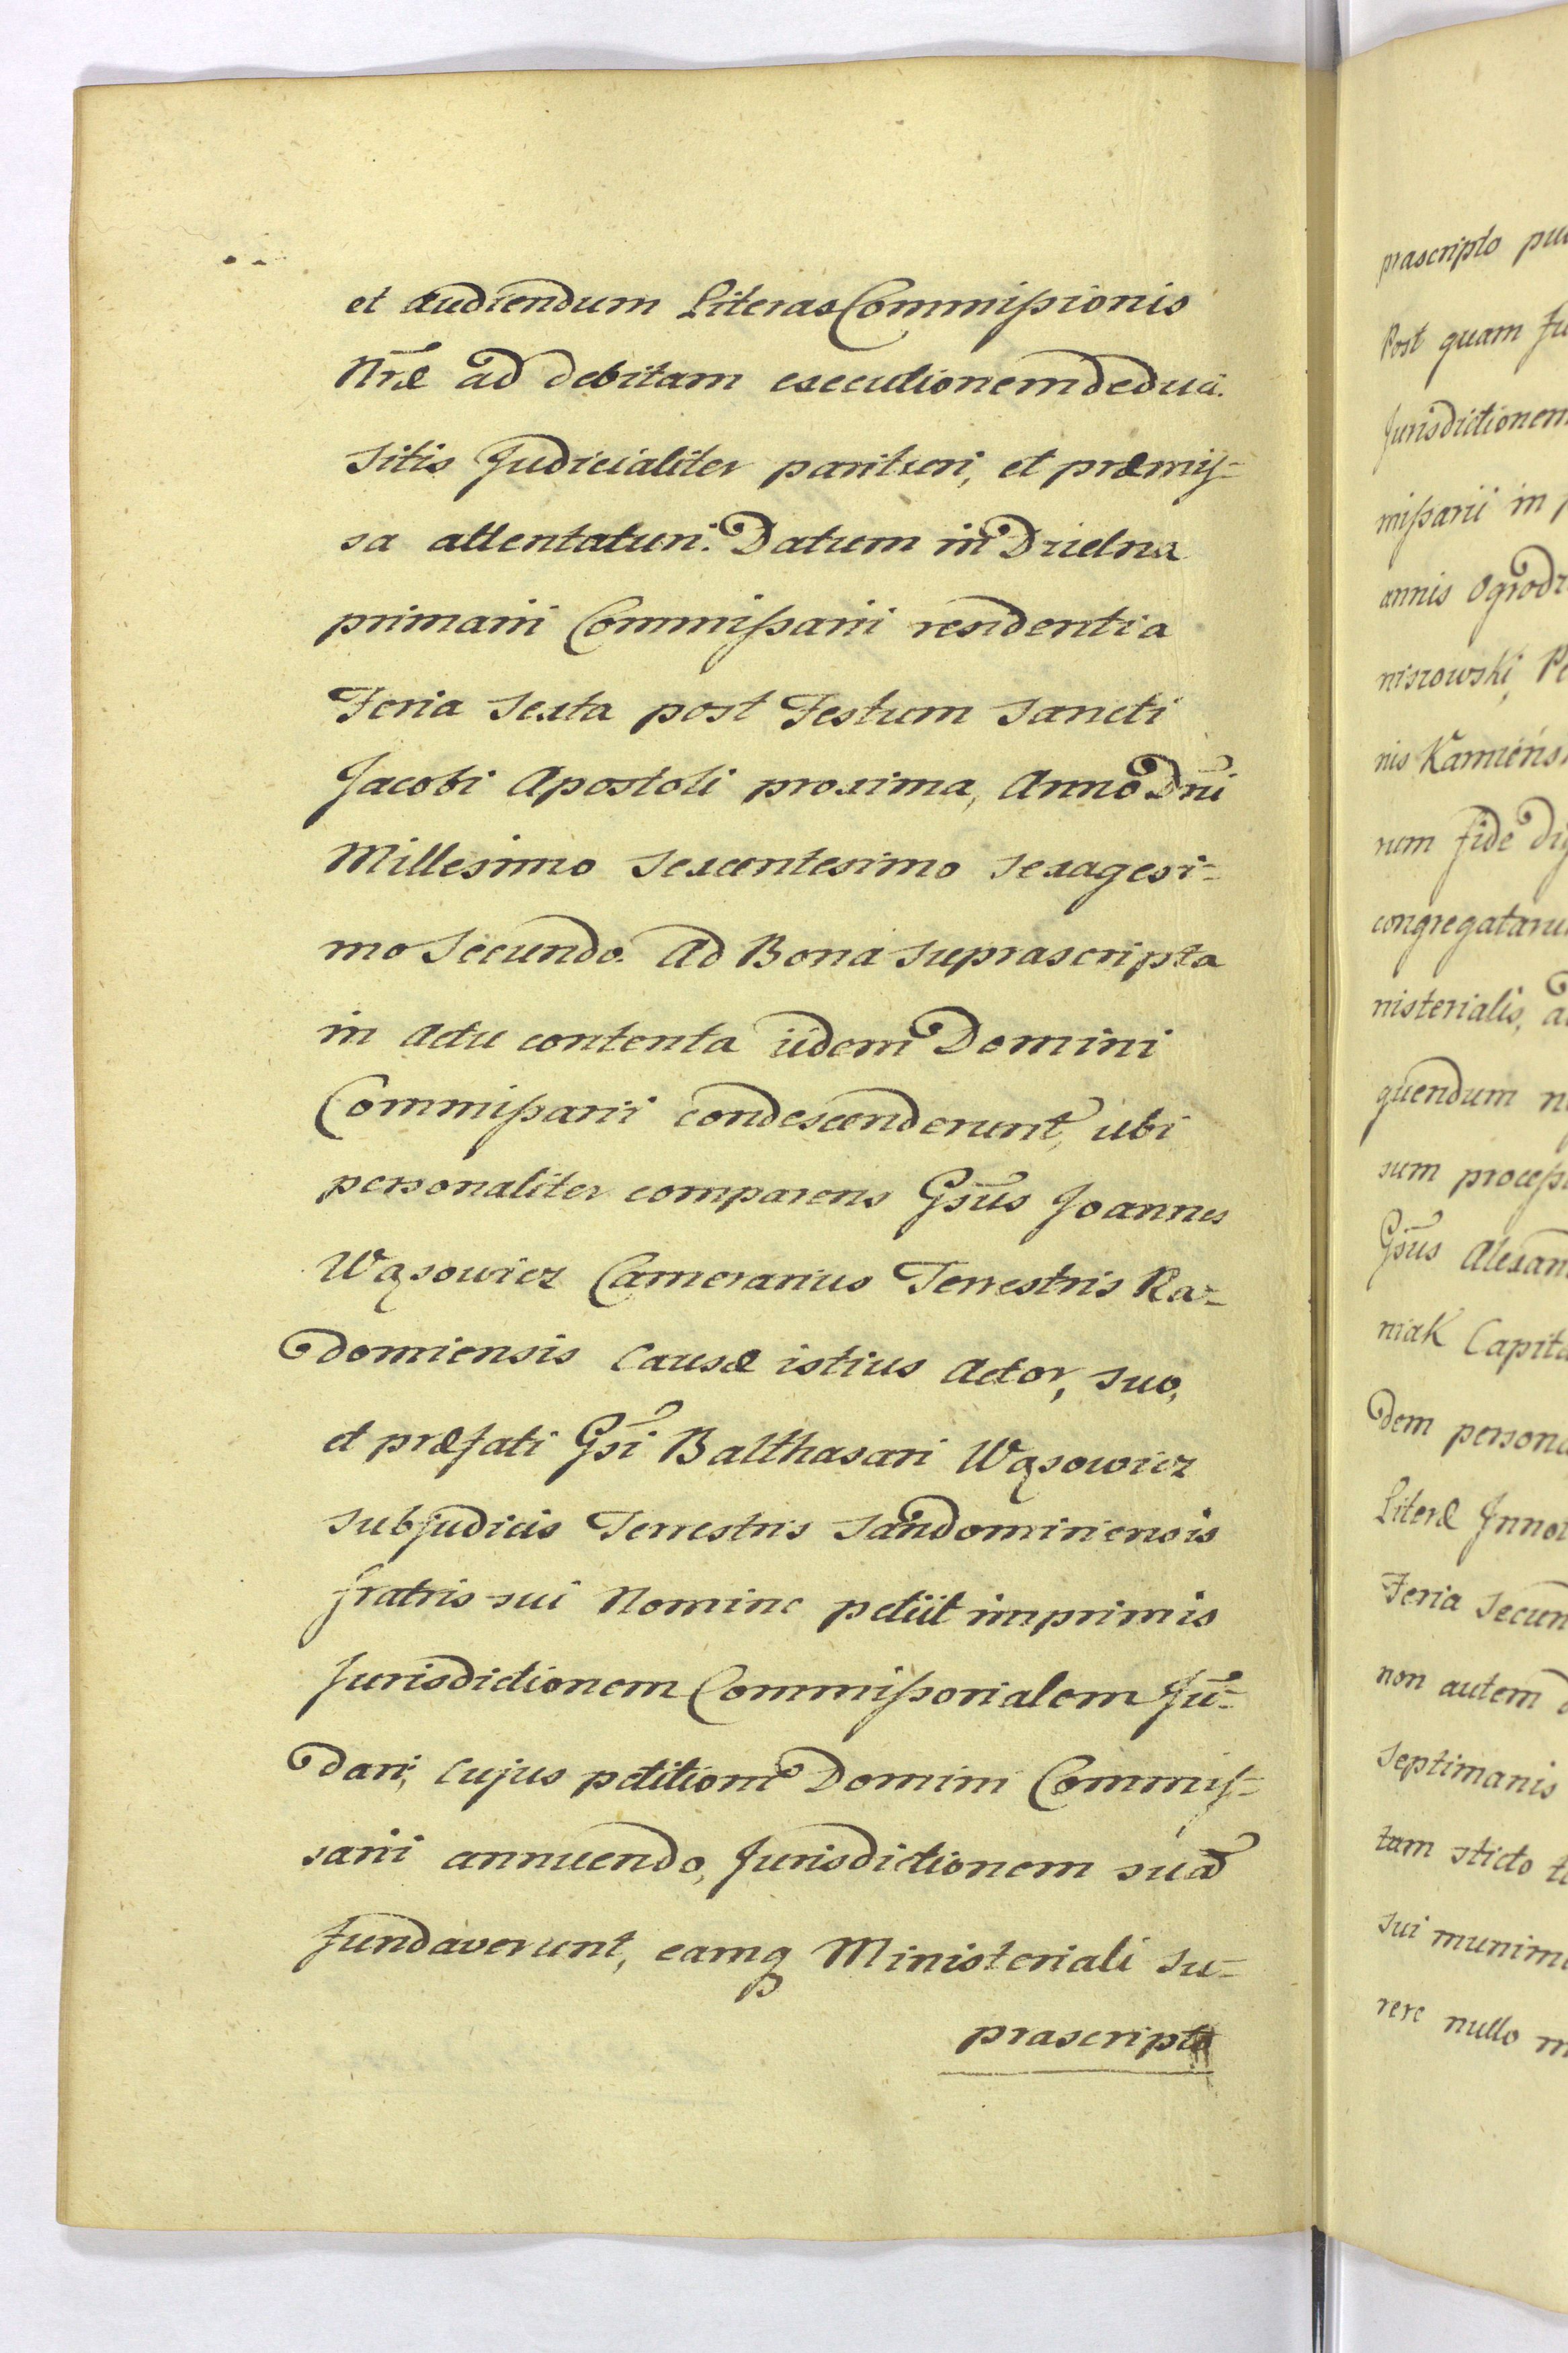 et audiendum Literas Commissionis
Nræ ad debitam executionem deduci.
sitis Judicialiter parituri, et præmis=
sa attentaturi. Datum in Drielna
primarii Commissarii residentia
Feria Sexta post Festum Sancti
Jacobi Apostoli proxima, Anno Dni
Millesimo Sexcentesimo Sexagesi=
mo Secundo. Ad Bona suprascripta
in Actu contenta iidem Domini
Commissarii condescenderunt, ubi
personaliter comparens Gsus Joannes
Wąsowicz Camerarius Terrestris Ra=
domiensis Causæ istius Actor, suo,
et præfati Gsi Balthasari Wąsowicz
Subjudicis Terrestris Sandomiriensis
fratris sui Nomine petiit imprimis
Jurisdictionem Commissorialem fu=
dari, cujus petitioni Domini Commis=
sarii annuendo, Jurisdictionem suã
fundaverunt, eamq Ministeriali su=
prascripto
prascripto
Post quam
Jurisdictionem
missarii in
annis
niszowski,
nis
rum fide
congregataru
nisterialis,
quendum
sum
Gsus Alexan
niak Capita
dem persona
Literæ Innot
Feria Secun
non autem
Septimanis
tam sticto
sui munim
rere nullo